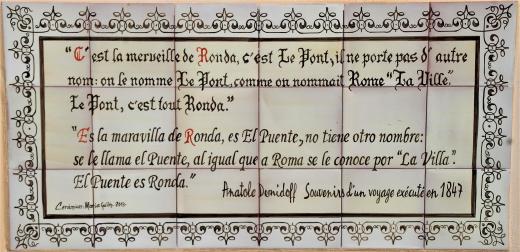 “C'est la merveille de Ronda, c'est Le Pont, il ne porte pas d'autre
nom: on le nomme Le Pont, comme on nommait Rome “La Ville”.
Le Pont, c'est tout Ronda.”
“Es la maravilla de Ronda, es El Puente, no tiene otro nombre:
se le llama el Puente, al igual que a Roma se le conoce por “La Villa”.
El Puente es Ronda.”
Anatole Demidoff Souvenirs d'un voyage exécuté en 1847